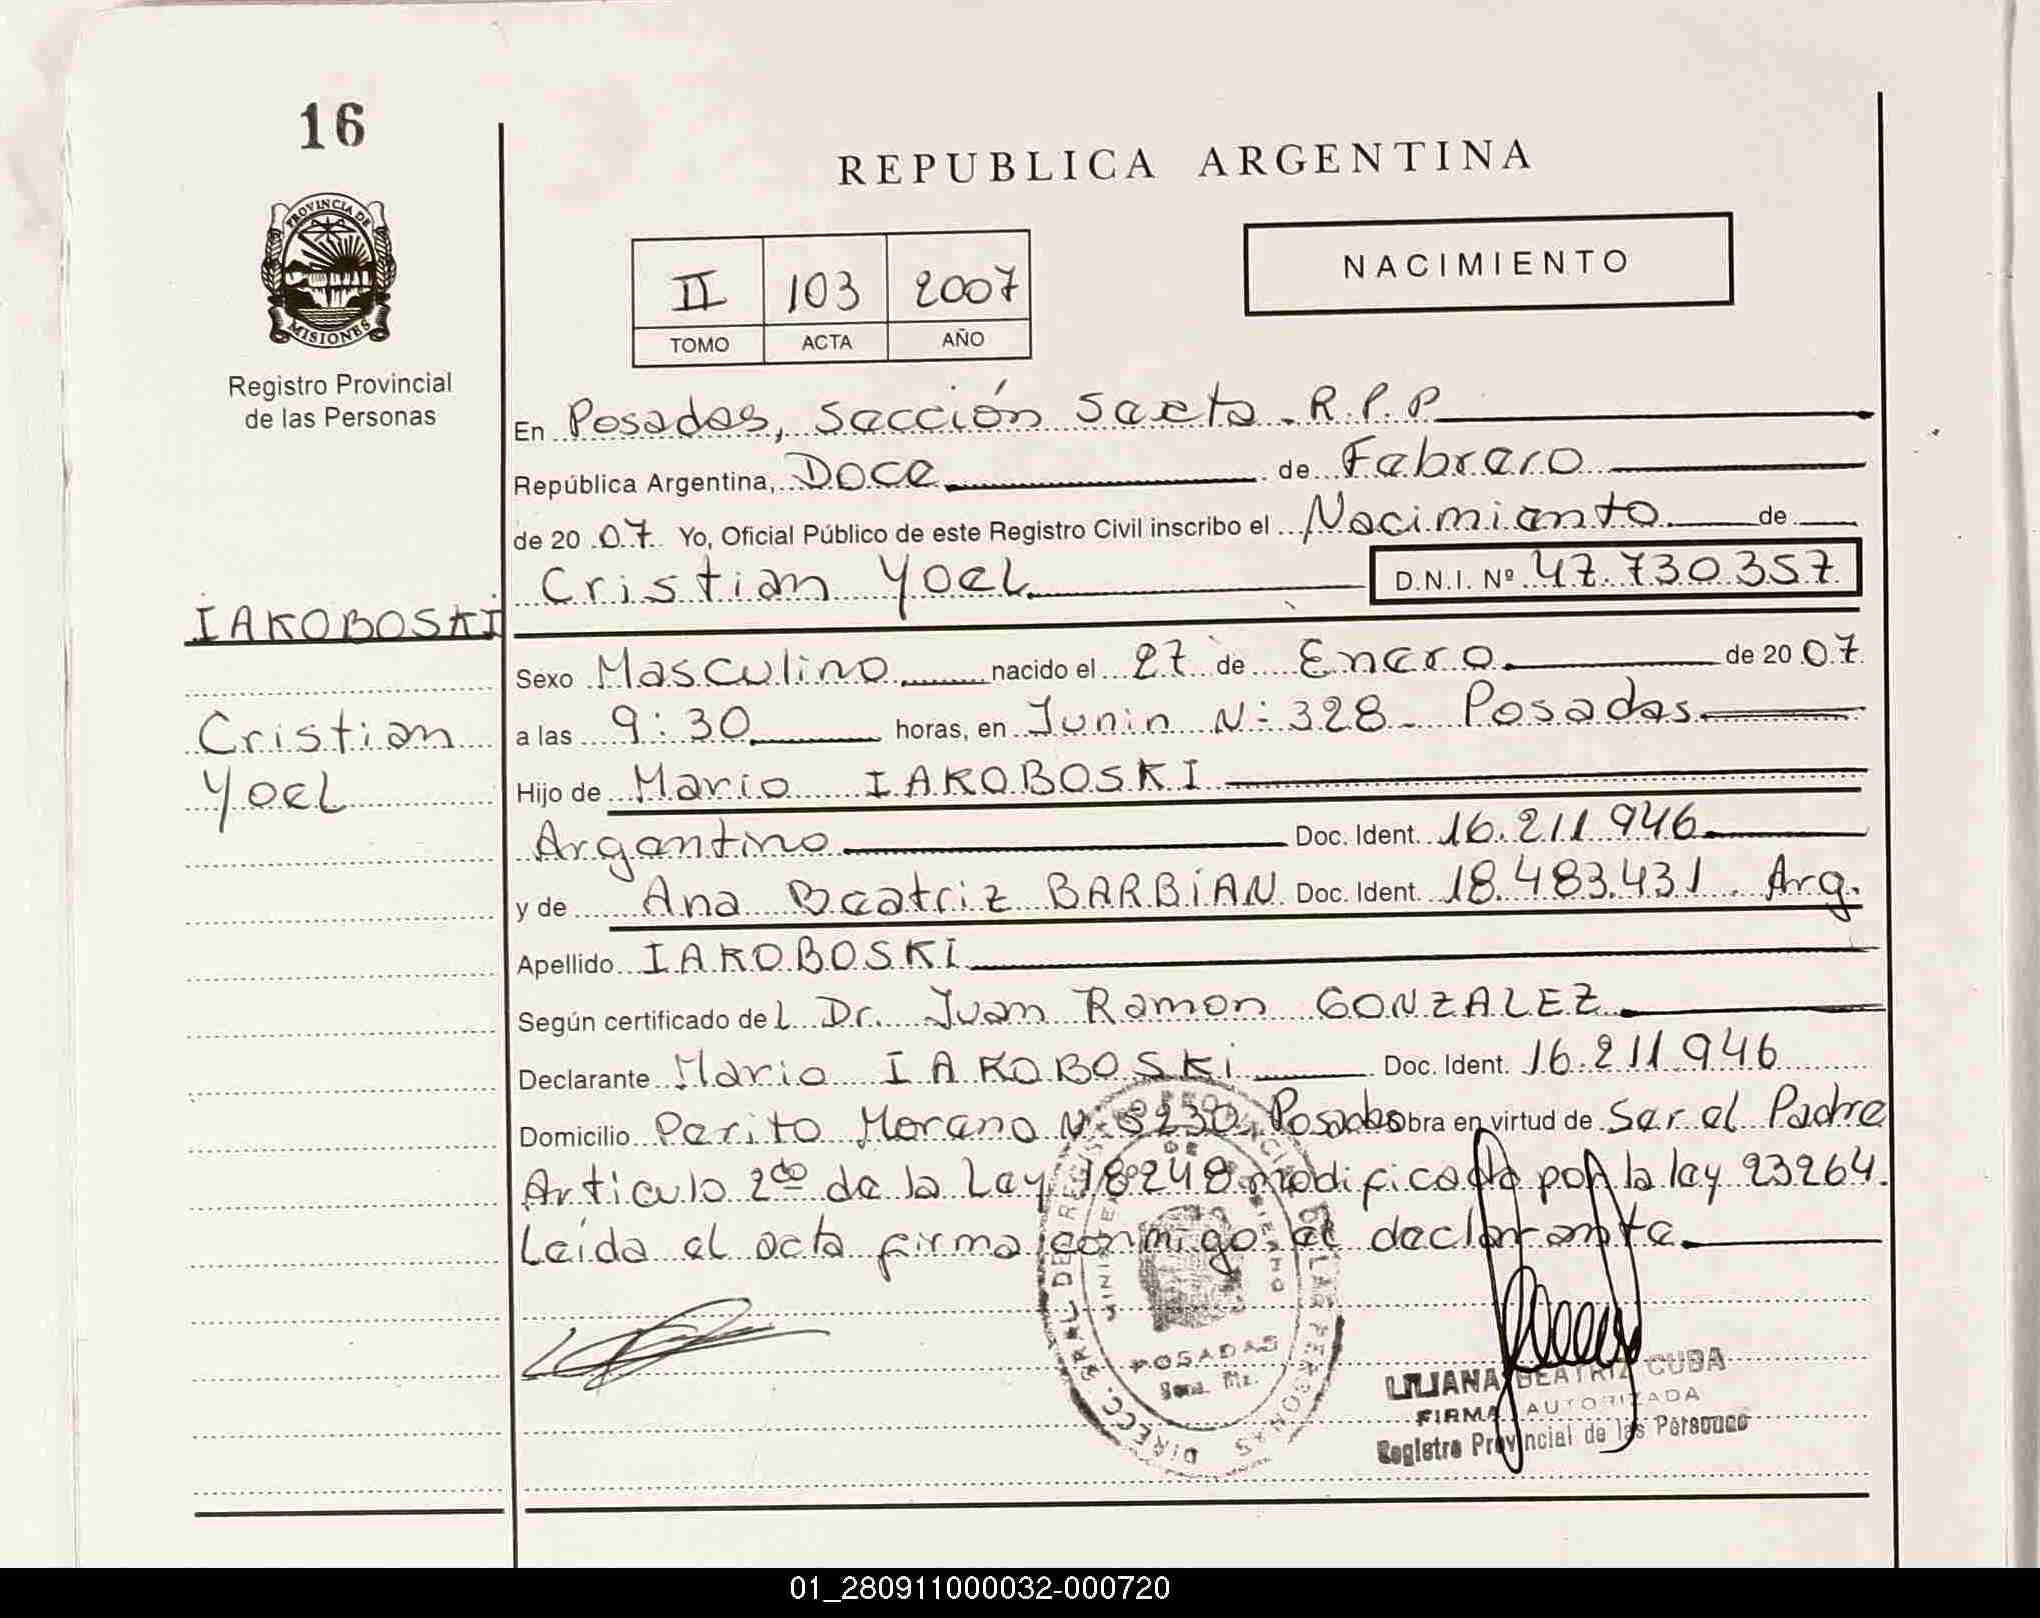 16
REPUBLICA ARGENTINA
PROVINCIA DE
MISIONES
Registro Provincial
de las Personas
II 103 2007
TOMO ACTA AÑO
NACIMIENTO
En Posadas, Sección Sexta. R.P.P.
República Argentina, Doce de Febrero
de 2007 Yo, Oficial Público de este Registro Civil inscribo el Nacimiento de
Cristian Yoel D.N.I. Nº 47.730.357
IAKOBOSKI
Sexo Masculino nacido el 27 de Enero de 2007
Cristian
Yoel
a las 9:30 horas, en Junin Nº 328 - Posadas
Hijo de Mario IAKOBOSKI
Argentino Doc. Ident. 16.211.946
y de Ana Beatriz BARBIAN Doc. Ident. 18.483.431. Arg.
Apellido IAKOBOSKI
Según certificado del Dr. Juan Ramon GONZALEZ
Declarante Mario IAKOBOSKI Doc. Ident. 16.211.946
Domicilio Perito Moreno Nº 8230, Posadas obra en virtud de Ser el Padre
Articulo 2do de la Ley 18248 modificada por la ley 23264.
Leída el acta firma conmigo el declarante.
DIRECC. GRAL DE REGISTRO PROVINCIAL DE LAS PERSONAS
POSADAS
LILIANA BEATRIZ CUBA
FIRMA AUTORIZADA
Registro Provincial de las Personas
01_280911000032-000720